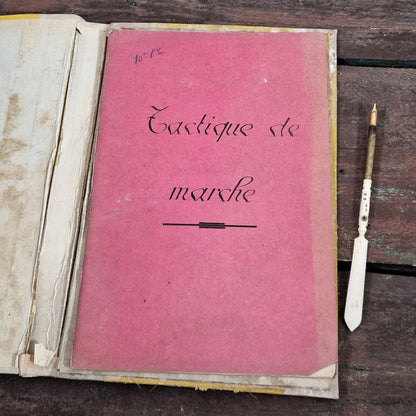 Tactique de
marche